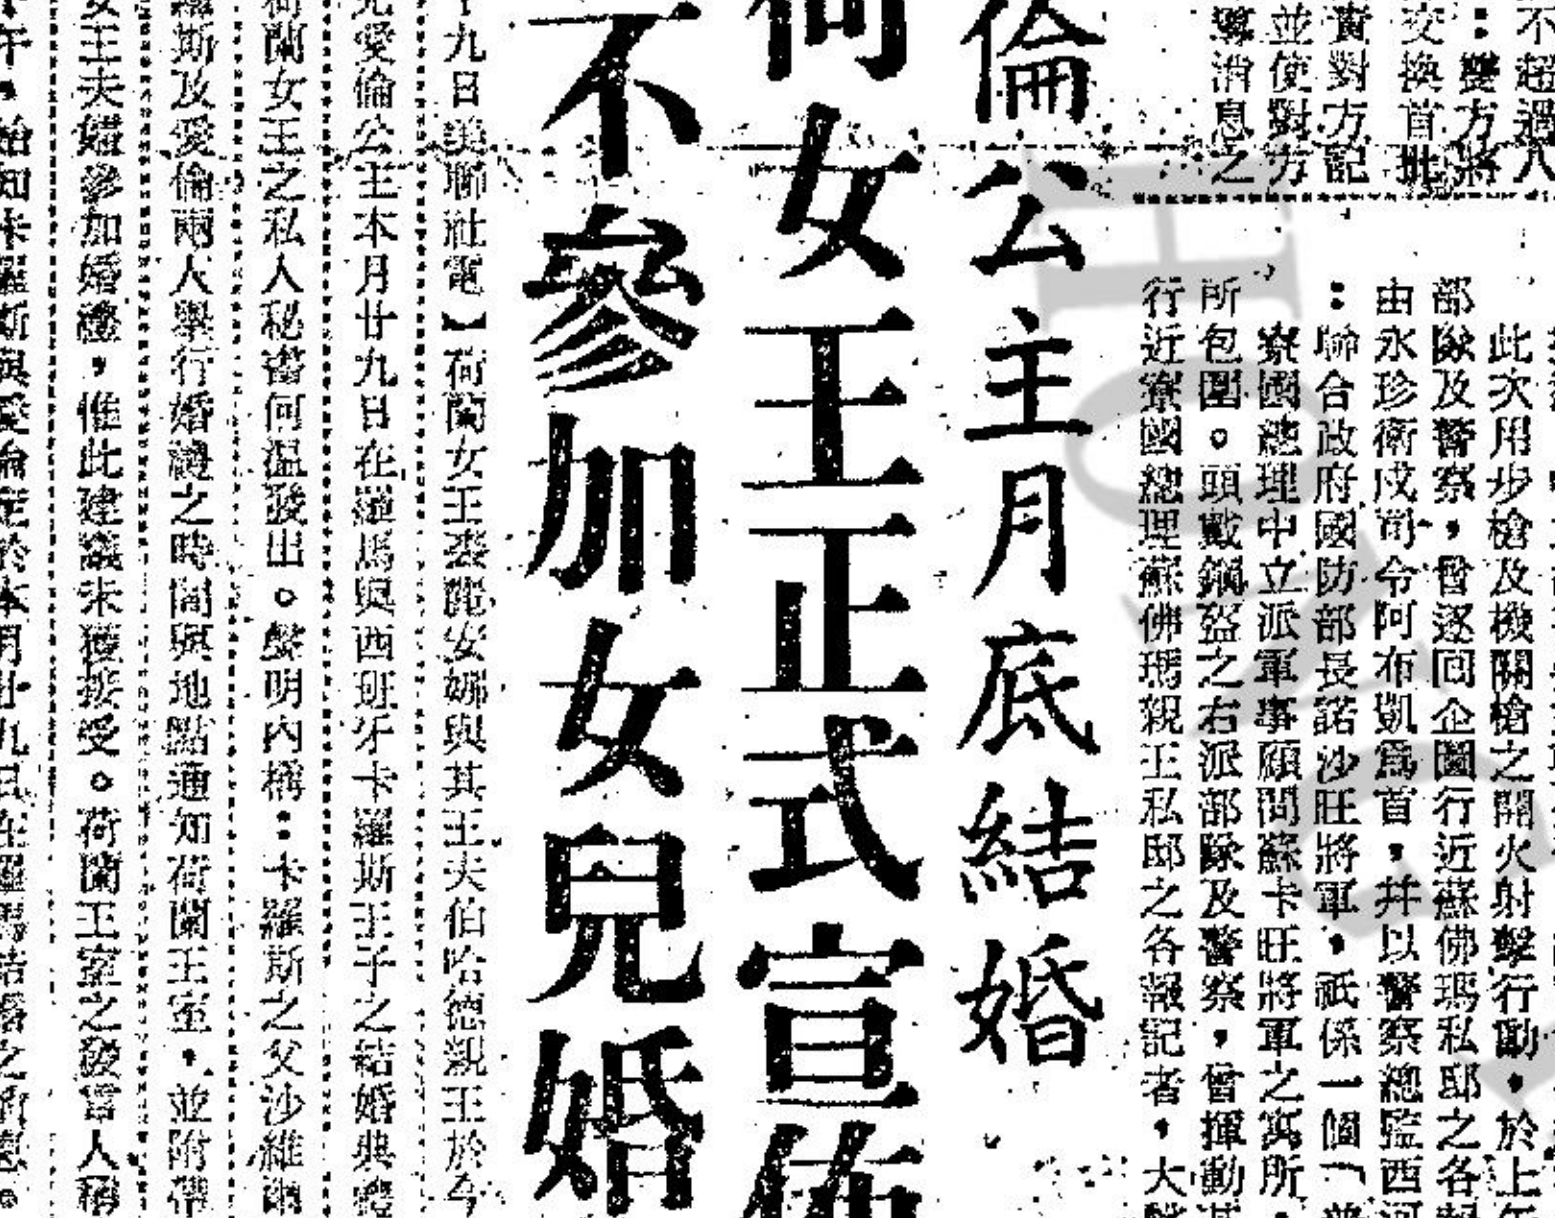 不超過八
：雙方將
交換首批
責對方記
並使對方
導消息之
此次用步槍及機關槍之開火射擊行動，於上午
部隊及警察，曾逐回企圖行近蘇佛瑪私邸之各報
由永珍衛戍司令阿布凱爲首，并以警察總監西河
：聯合政府國防部長諾沙旺將軍，祇係一個「普
寮國總理中立派軍事顧問蘇卡旺將軍之寓所，
所包圍。頭戴鋼盔之右派部隊及警察，曾揮動其
行近寮國總理蘇佛瑪親王私邸之各報記者，大聲
倫公主月底結婚
荷女王正式宣佈
不參加女兒婚
十九日美聯社電】荷蘭女王裘麗安娜與其王夫伯哈德親王於今
愛倫公主本月廿九日在羅馬與西班牙卡羅斯王子之結婚典禮
荷蘭女王之私人秘書何溫發出。聲明內稱：卡羅斯之父沙維爾
羅斯及愛倫兩人舉行婚禮之時間與地點通知荷蘭王室，並附帶
女王夫婦參加婚禮，惟此建議未獲接受。荷蘭王室之發言人稱
午，始知卡羅斯與愛倫定於本月廿九日在羅馬結婚之消息。
HONG